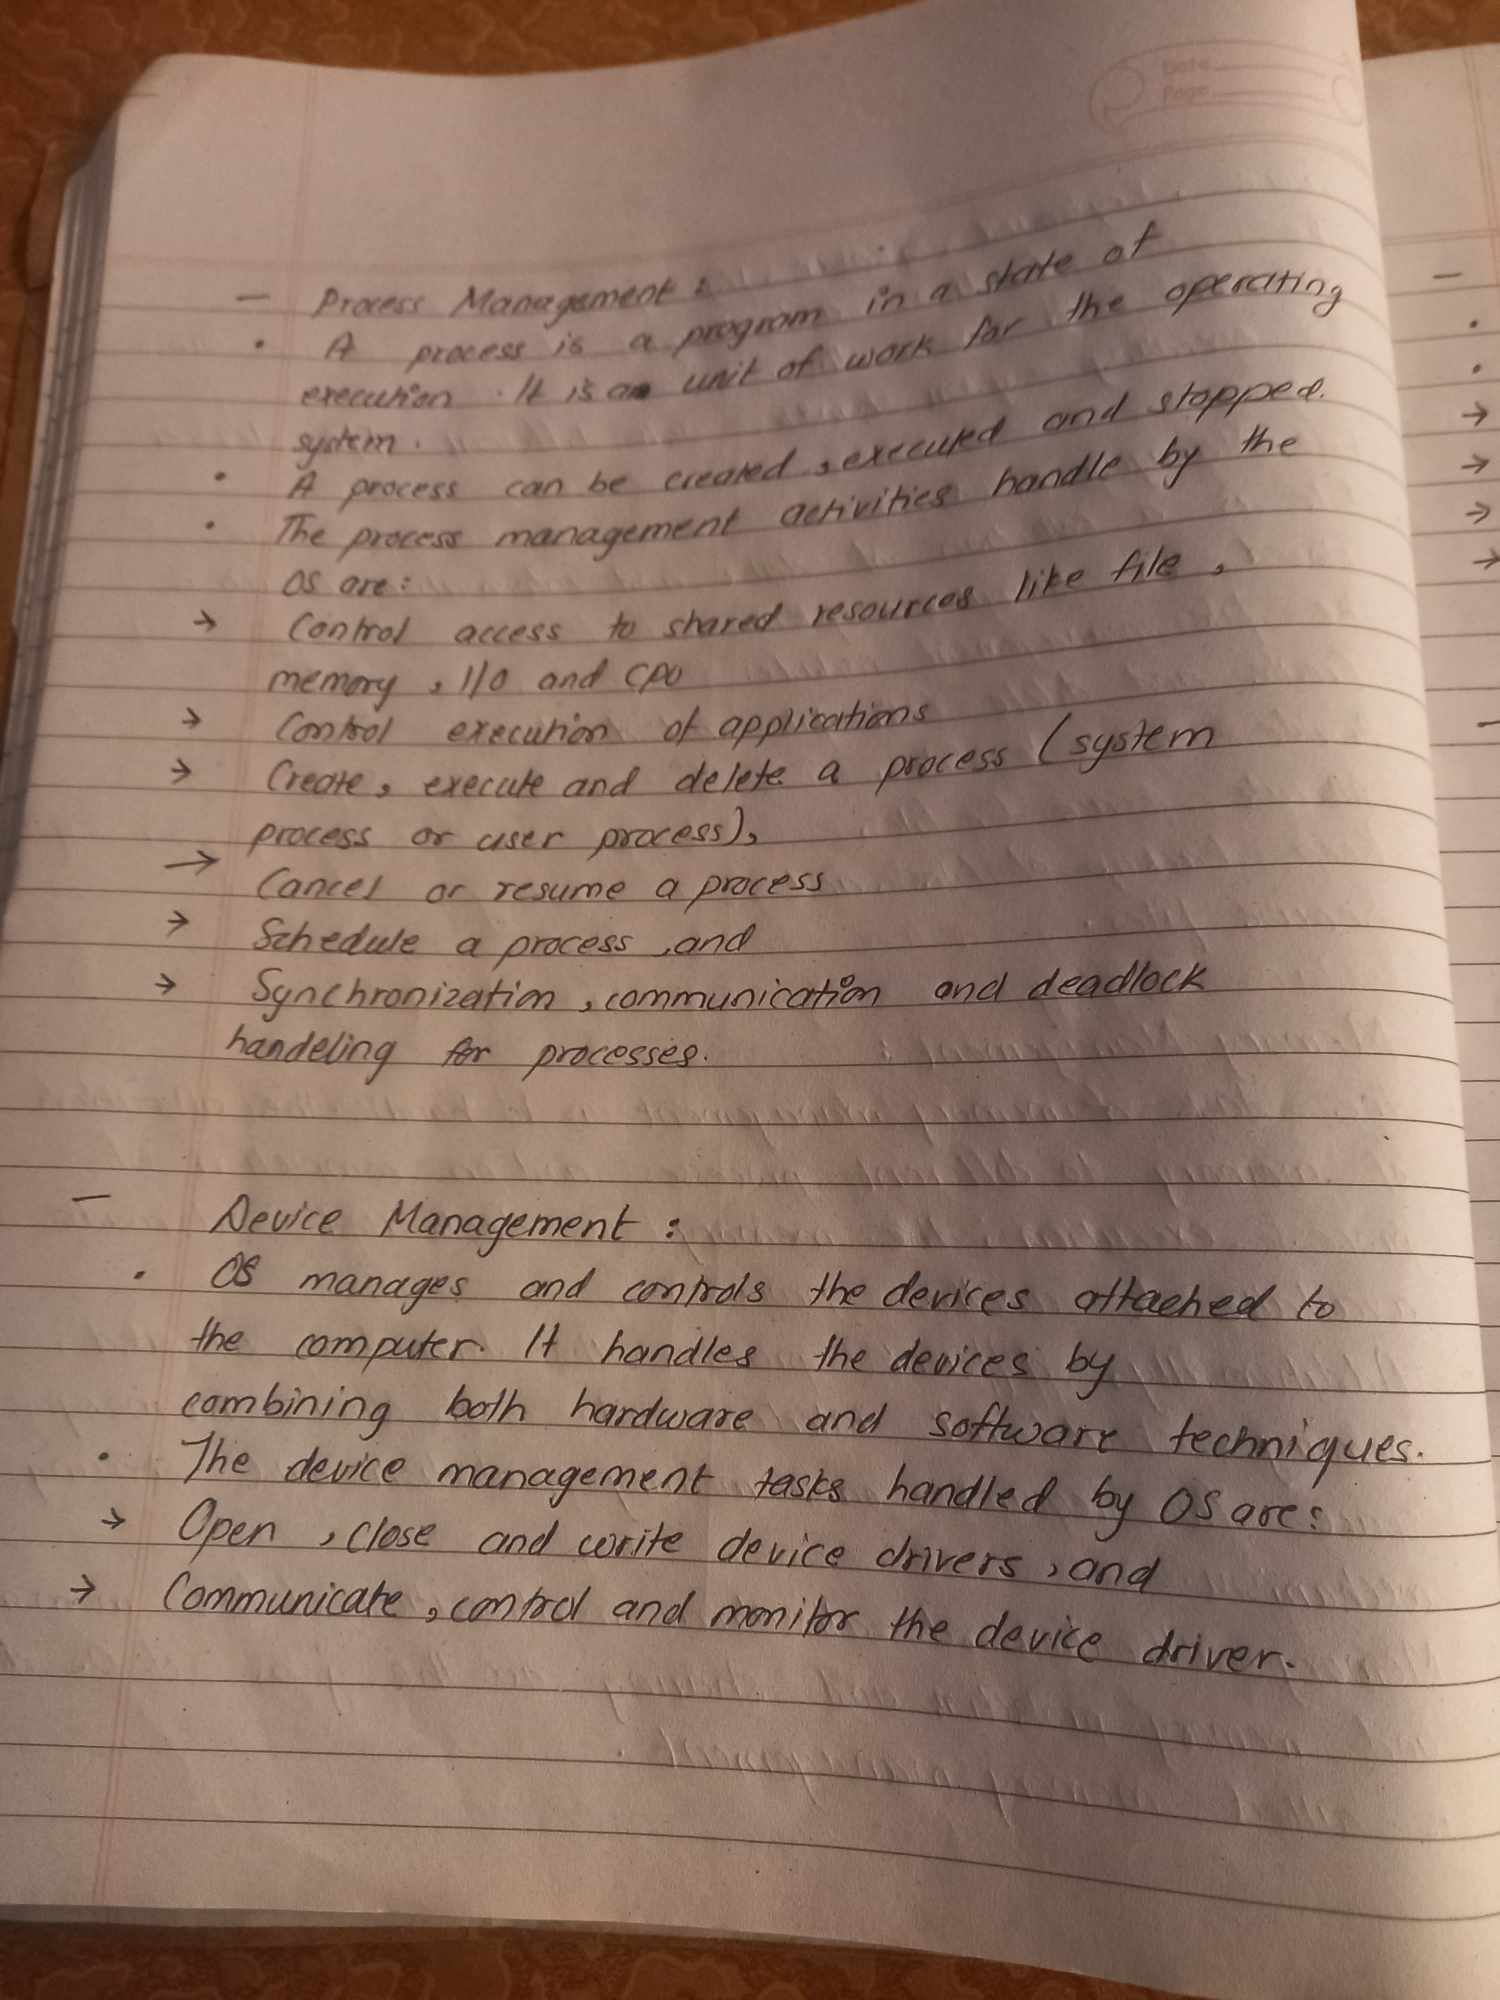 Date
Page
— Process Management :
• A process is a program in a state of
execution. It is a unit of work for the operating
system.
• A process can be created, executed and stopped.
• The process management activities handle by the
OS are:
→ Control access to shared resources like file,
memory, I/O and CPU
→ Control execution of applications
→ Create, execute and delete a process (system
process or user process),
→ Cancel or resume a process
→ Schedule a process, and
→ Synchronization, communication and deadlock
handeling for processes.
— Device Management :
• OS manages and controls the devices attached to
the computer. It handles the devices by
combining both hardware and software techniques.
• The device management tasks handled by OS are:
→ Open, close and write device drivers, and
→ Communicate, control and monitor the device driver.